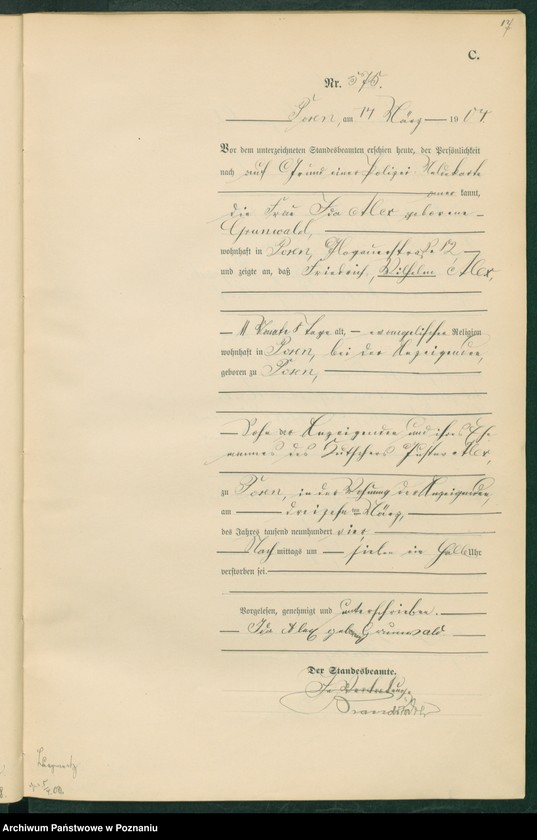 17
C.
Nr. 575.
Posen, am 14 März 1904
Vor dem unterzeichneten Standesbeamten erschien heute, der Persönlichkeit
nach auf Grund einer Polizei Meldekarte
anerkannt,
die Frau Ida Alex geborene
Grunwald,
wohnhaft in Posen, Glogauerstraße 12
und zeigte an, daß Friedrich, Wilhelm Alex,
11 Monate 5 Tage alt, evangelischer Religion
wohnhaft in Posen, bei der Anzeigenden,
geboren zu Posen,
Sohn der Anzeigenden und ihres Ehe
mannes des Kutschers Gustav Alex,
zu Posen, in der Wohnung der Anzeigenden,
am dreizehnten März,
des Jahres tausend neunhundert vier
Nachmittags um halb Uhr
verstorben sei.
Vorgelesen, genehmigt und unterschrieben.
Ida Alex geb. Grunwald
Der Standesbeamte.
In Vertretung.
Archiwum Państwowe w Poznaniu